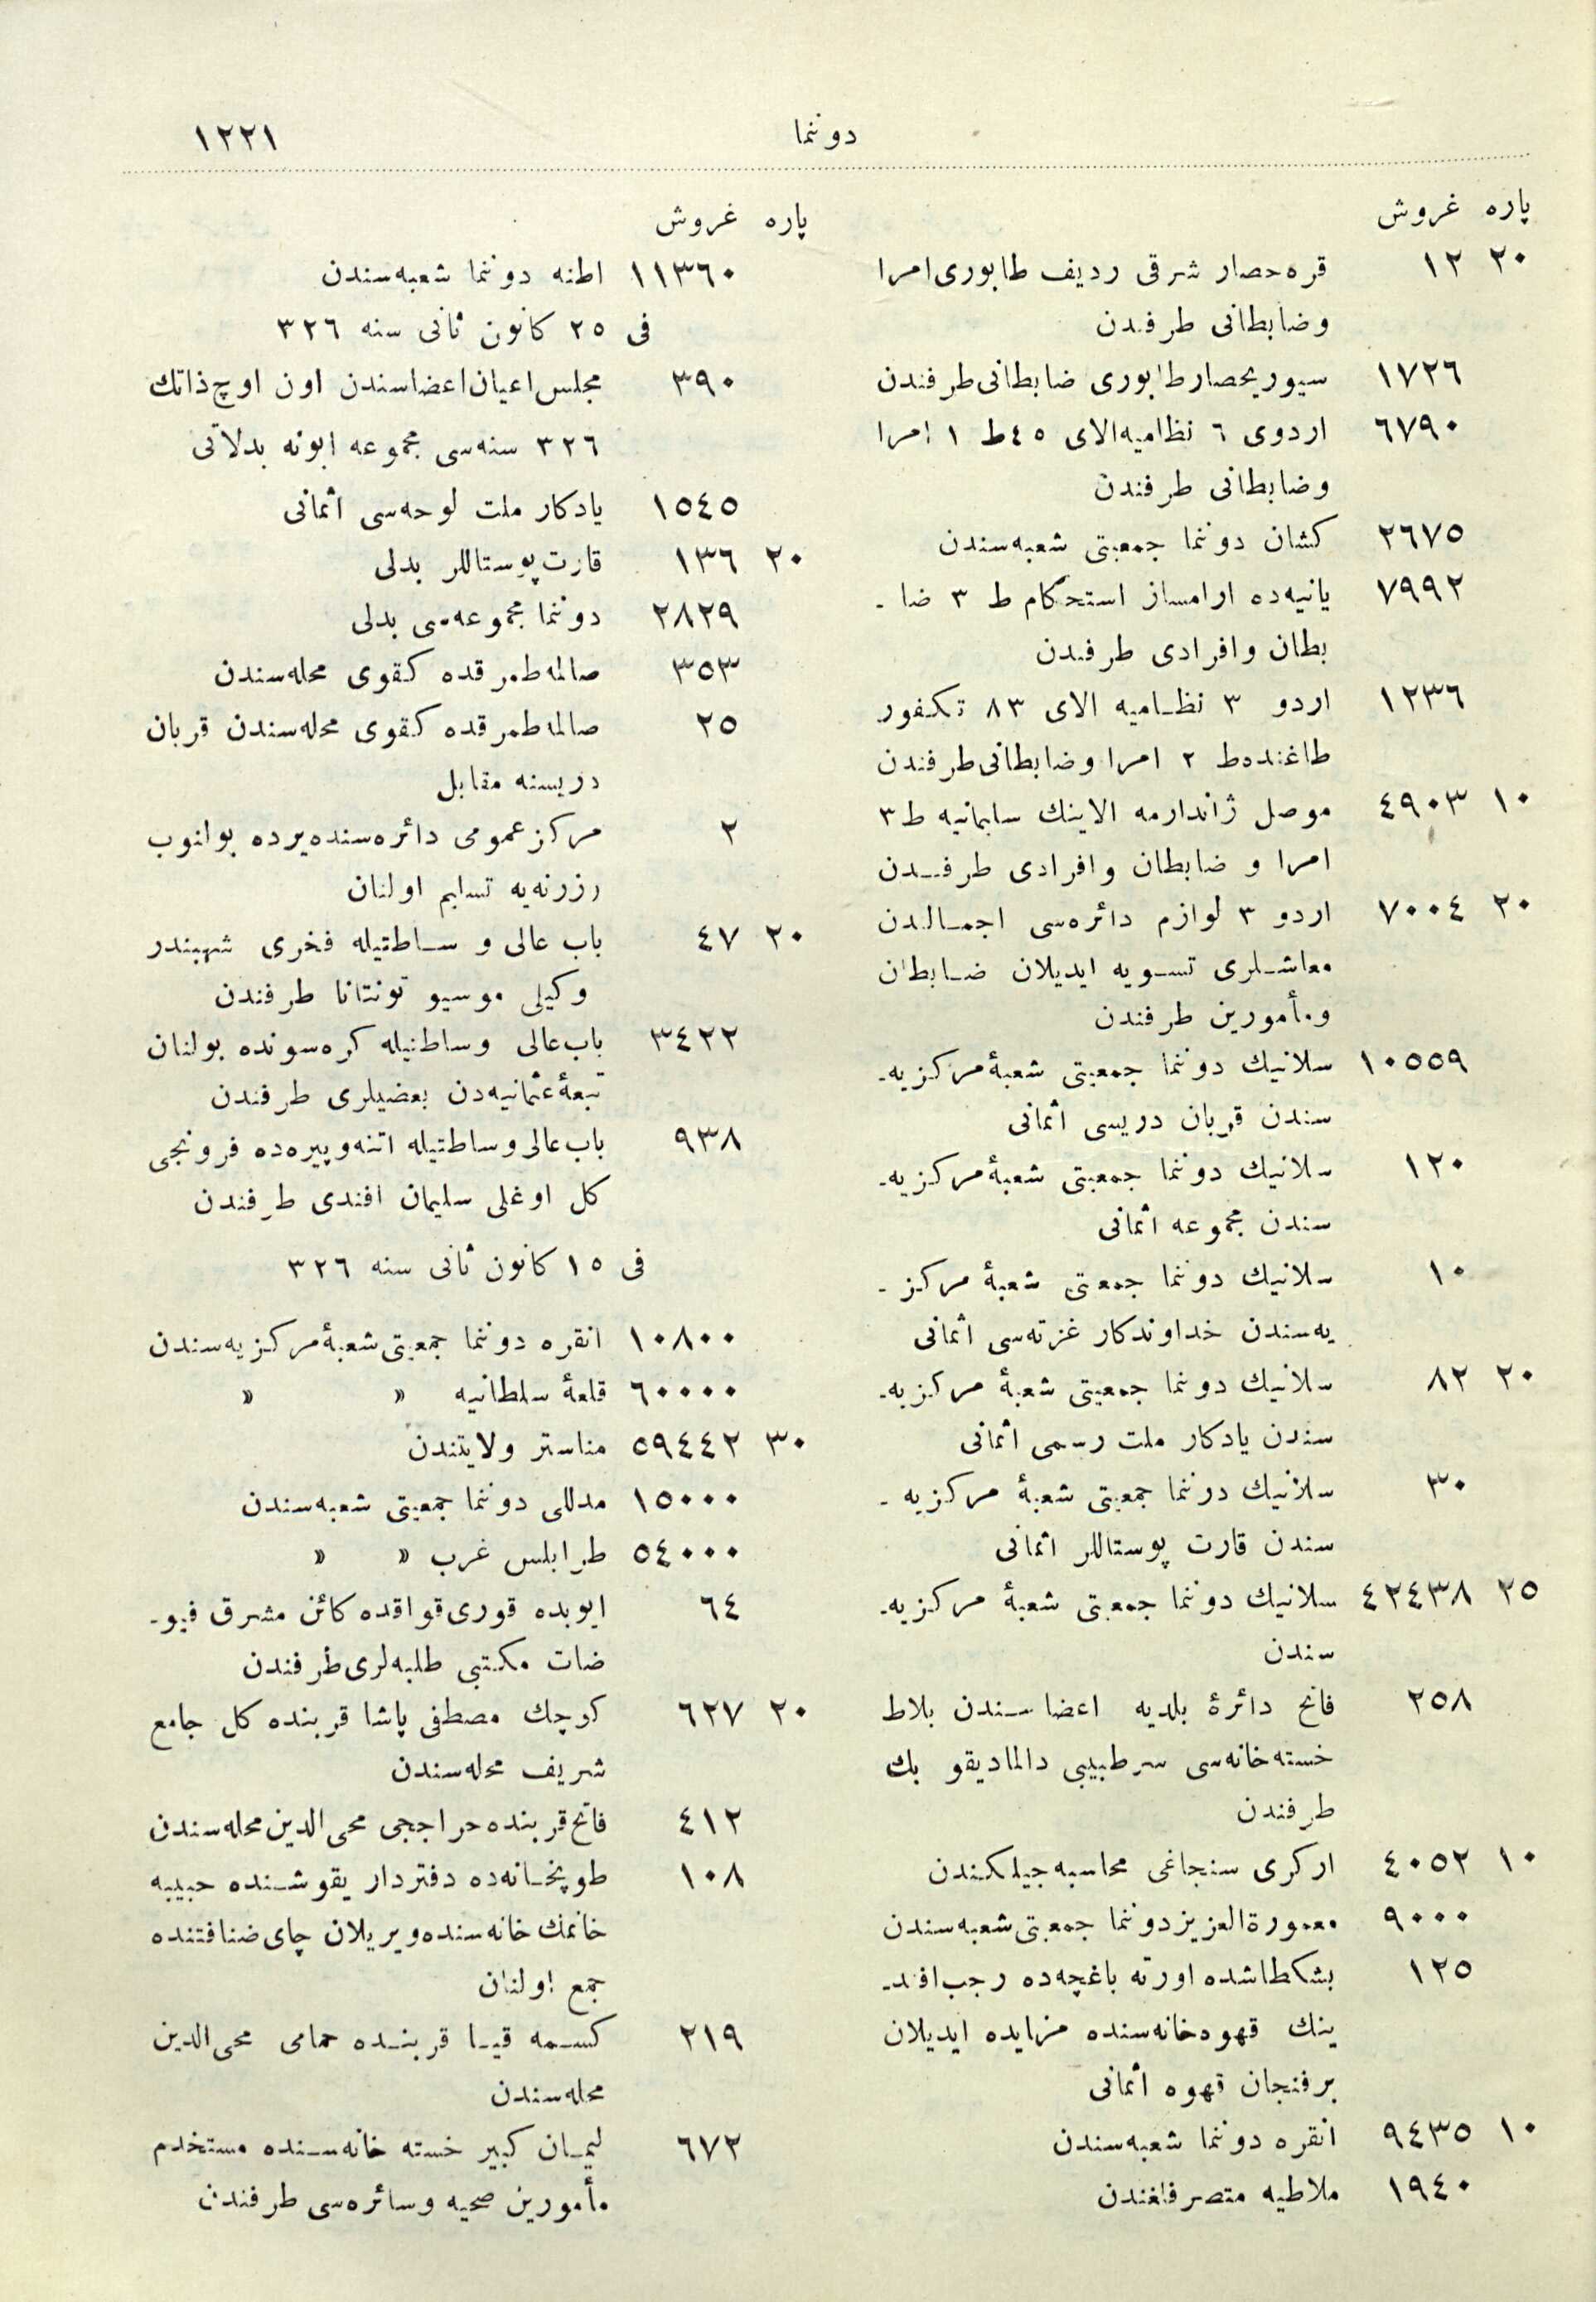 دوننما ١٢٢١
پاره غروش
٢٠ ١٢ قره حصار شرقی ردیف طابوری امرا
وضابطانی طرفندن
١٧٢٦ سیوریحصار طابوری ضابطانی طرفندن
٦٧٩٠ اردوی ٦ نظامیه الای ٤٥ ط ١ امرا
وضابطانی طرفندن
٢٦٧٥ كشان دوننما جمعیتی شعبه سندن
٧٩٩٢ یانیه ده ارامساز استحكام ط ٣ ضا -
بطان وافرادی طرفندن
١٢٣٦ اردو ٣ نظامیه الای ٨٣ تكفور
طاغنده ط ٢ امرا وضابطانی طرفندن
١٠ ٤٩٠٣ موصل ژاندارمه الاینك سلیمانیه ط ٣
امرا و ضابطان وافرادی طرفندن
٢٠ ٧٠٠٤ اردو ٣ لوازم دائره سی اجمالدن
معاشلری تسویه ایدیلان ضابطان
ومأمورین طرفندن
١٠٥٥٩ سلانیك دوننما جمعیتی شعبهٔ مركزیه-
سندن قربان دریسی اثمانی
١٢٠ سلانیك دوننما جمعیتی شعبهٔ مركزیه-
سندن مجموعه اثمانی
١٠ سلانیك دوننما جمعیتی شعبهٔ مركز -
یه سندن خداوندكار غزته سی اثمانی
٢٠ ٨٢ سلانیك دوننما جمعیتی شعبهٔ مركزیه-
سندن یادكار ملت رسمی اثمانی
٣٠ سلانیك دوننما جمعیتی شعبهٔ مركزیه -
سندن قارت پوستاللر اثمانی
٢٥ ٤٢٤٣٨ سلانیك دوننما جمعیتی شعبهٔ مركزیه-
سندن
٢٥٨ فاتح دائرهٔ بلدیه اعضاسندن بلاط
خسته خانه سی سرطبیبی دالمادیقو بك
طرفندن
١٠ ٤٠٥٢ اركری سنجاغی محاسبه جیلكندن
٩٠٠٠ معمورة العزیز دوننما جمعیتی شعبه سندن
١٢٥ بشكطاشده اورته باغچه ده رجب افند-
ینك قهوه خانه سنده مزایده ایدیلان
برفنجان قهوه اثمانی
١٠ ٩٤٣٥ انقره دوننما شعبه سندن
١٩٤٠ ملاطیه متصرفلغندن
پاره غروش
١١٣٦٠ اطنه دوننما شعبه سندن
فی ٢٥ كانون ثانی سنه ٣٢٦
٣٩٠ مجلس اعیان اعضاسندن اون اوچ ذاتك
٣٢٦ سنه سی مجموعه ابونه بدلاتی
١٥٤٥ یادكار ملت لوحه سی اثمانی
٢٠ ١٣٦ قارت پوستاللر بدلی
٢٨٢٩ دوننما مجموعه سی بدلی
٣٥٣ صالمه طمرقده كقوی محله سندن
٢٥ صالمه طمرقده كقوی محله سندن قربان
دریسنه مقابل
٢ مركز عمومی دائره سنده یرده بولنوب
رزرنه یه تسلیم اولنان
٢٠ ٤٧ باب عالی و ساطتیله فخری شهبندر
وكیلی موسیو تونتانا طرفندن
٣٤٢٢ باب عالی وساطتیله كره سونده بولنان
تبعهٔ عثمانیه دن بعضیلری طرفندن
٩٣٨ باب عالی وساطتیله اتنه وپیره ده فرونجی
كل اوغلی سلیمان افندی طرفندن
فی ١٥ كانون ثانی سنه ٣٢٦
١٠٨٠٠ انقره دوننما جمعیتی شعبهٔ مركزیه سندن
٦٠٠٠٠ قلعهٔ سلطانیه » »
٣٠ ٥٩٤٤٢ مناستر ولایتندن
١٥٠٠٠ مدللی دوننما جمعیتی شعبه سندن
٥٤٠٠٠ طرابلس غرب » »
٦٤ ایوبده قوری قواقده كائن مشرق فیو-
ضات مكتبی طلبه لری طرفندن
٢٠ ٦٢٧ كوچك مصطفی پاشا قربنده كل جامع
شریف محله سندن
٤١٢ فاتح قربنده حراججی محی الدین محله سندن
١٠٨ طوپخانه ده دفتردار یقوشنده حبیبه
خانمك خانه سنده ویریلان چای ضیافتنده
جمع اولنان
٢١٩ كسمه قیا قربنده حمامی محی الدین
محله سندن
٦٧٢ لیمان كبیر خسته خانه سنده مستخدم
مأمورین صحیه وسائره سی طرفندن